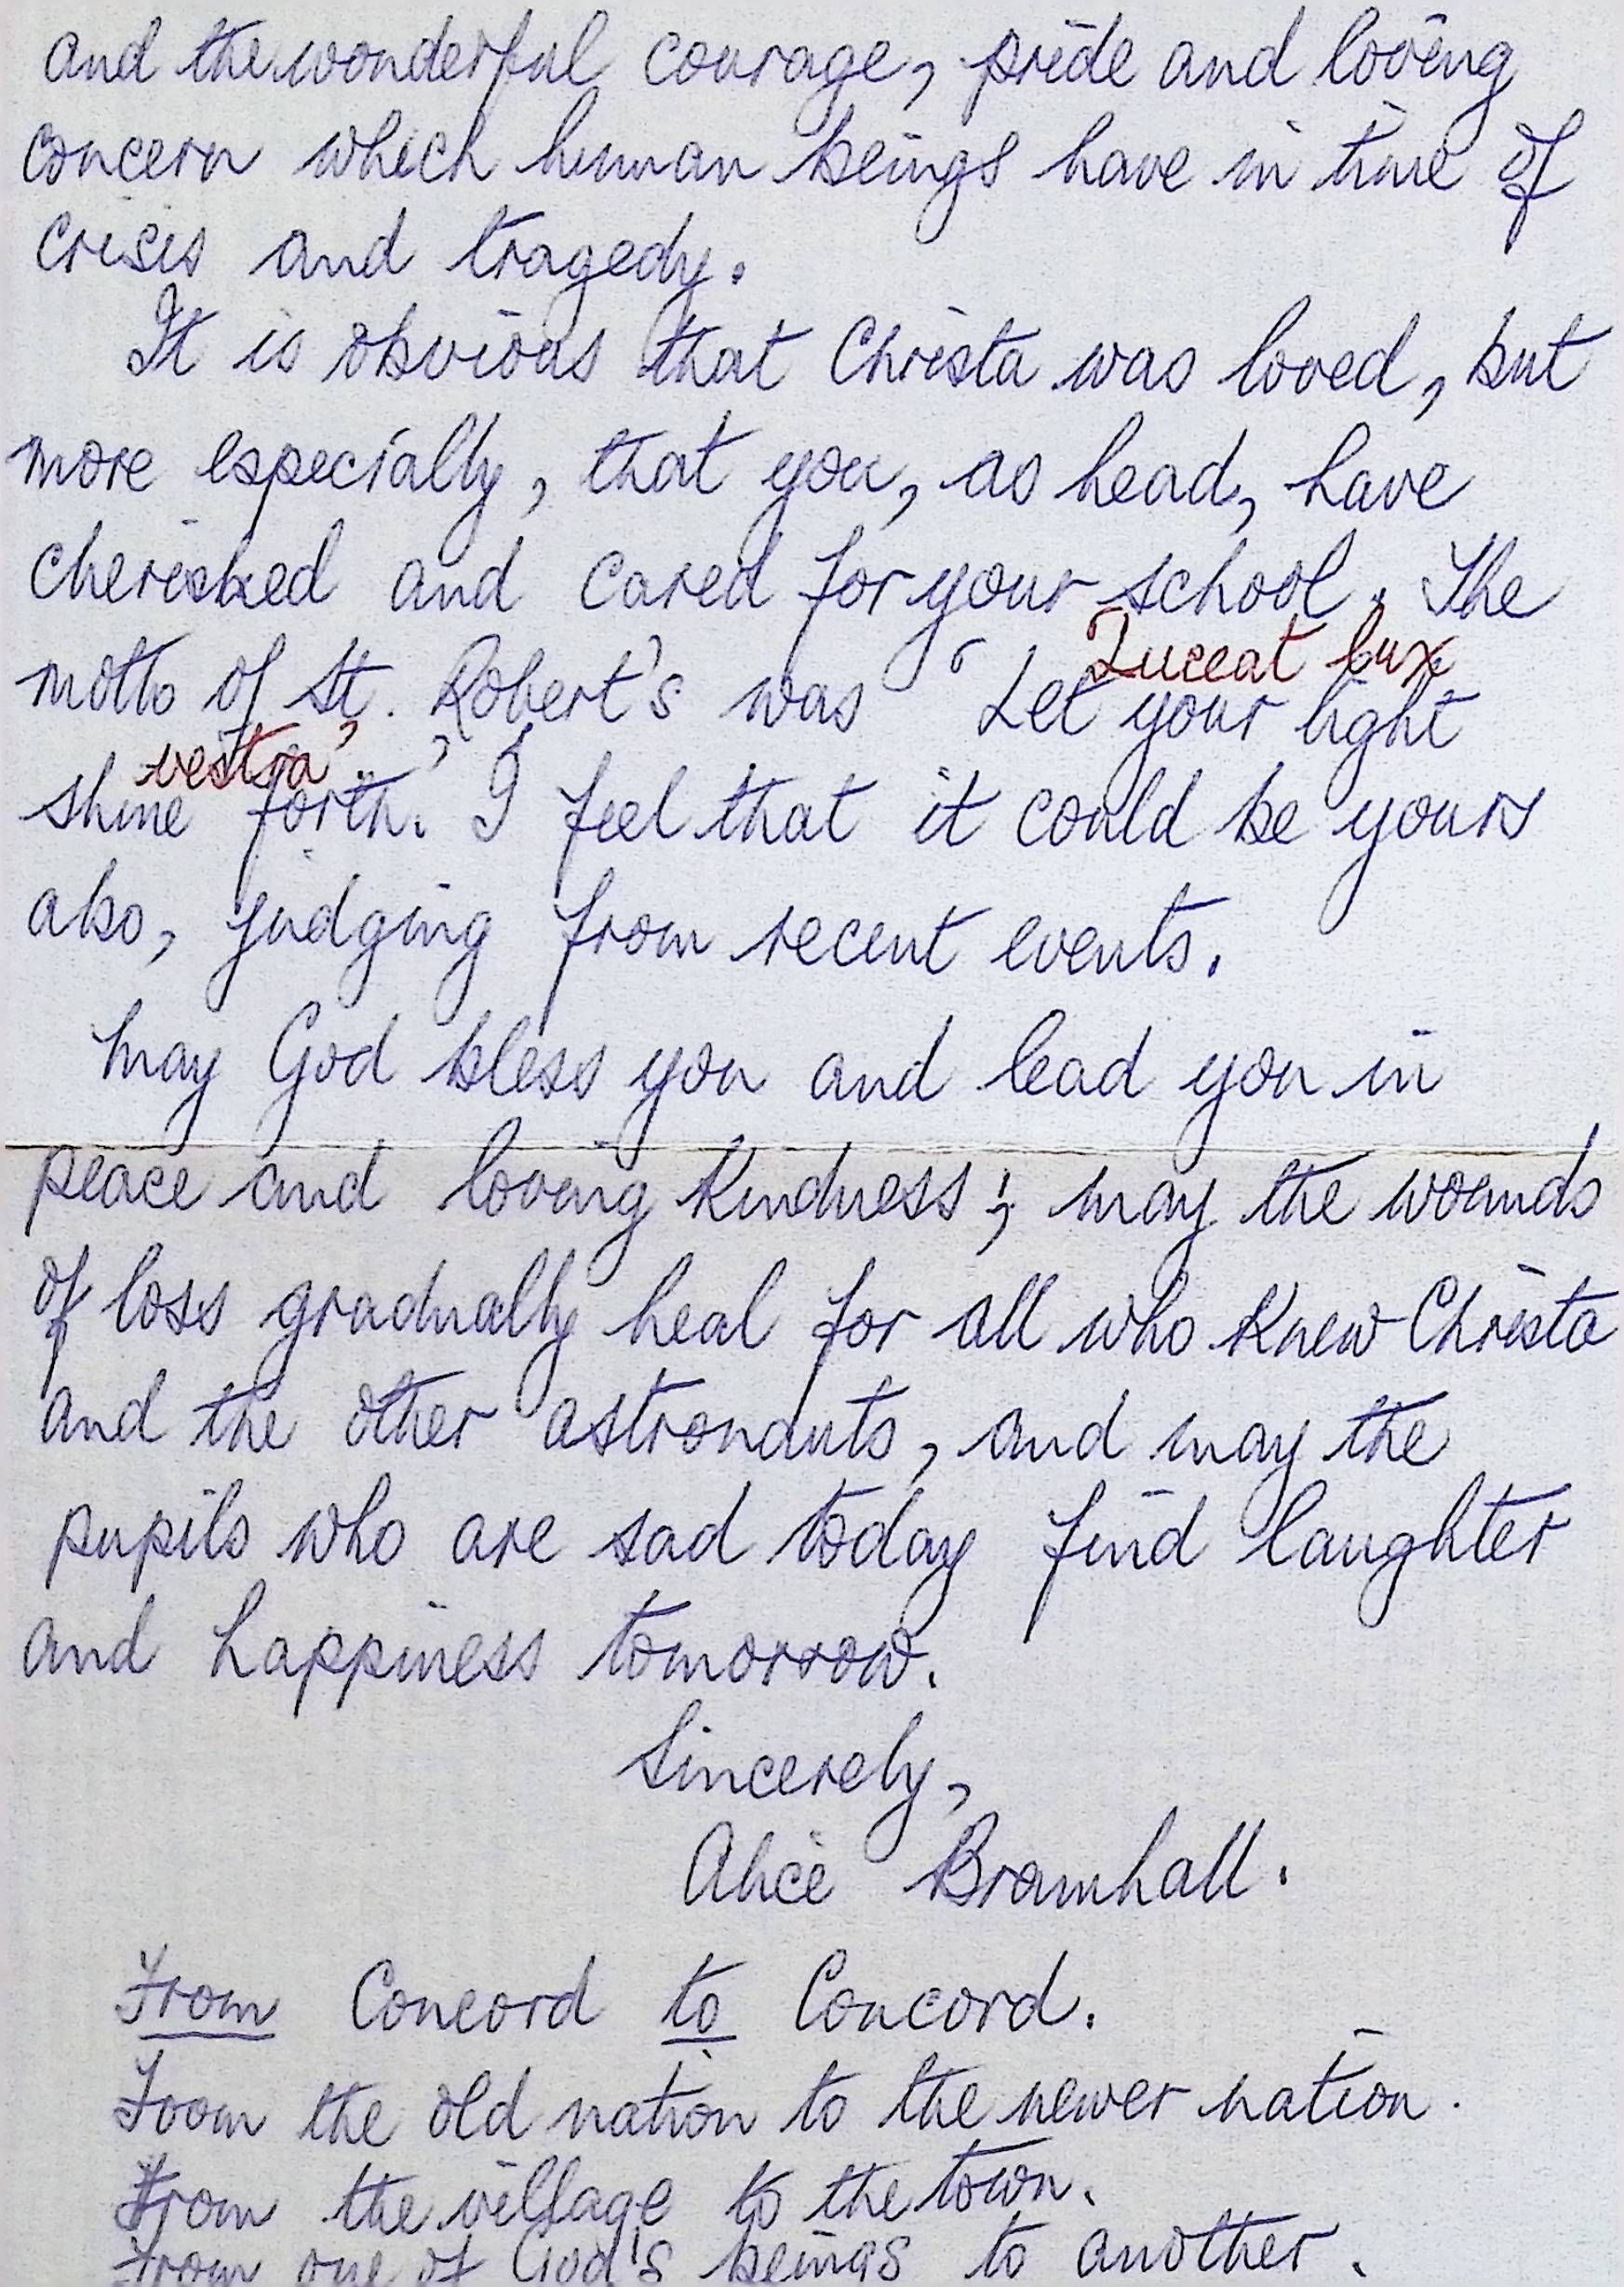 and the wonderful courage, pride and loving
concern which human beings have in time of
crisis and tragedy.
It is obvious that Christa was loved, but
more especially, that you, as head, have
cherished and cared for your school. The
Luceat lux
motto of St. Robert's was ‘Let your light
vestra’
shine forth.’ I feel that it could be yours
also, judging from recent events.
May God bless you and lead you in
peace and loving kindness; may the wounds
of loss gradually heal for all who knew Christa
and the other astronauts, and may the
pupils who are sad today find laughter
and happiness tomorrow.
Sincerely,
Alice Bramhall.
From Concord to Concord.
From the old nation to the newer nation.
From the village to the town.
From one of God's beings to another.